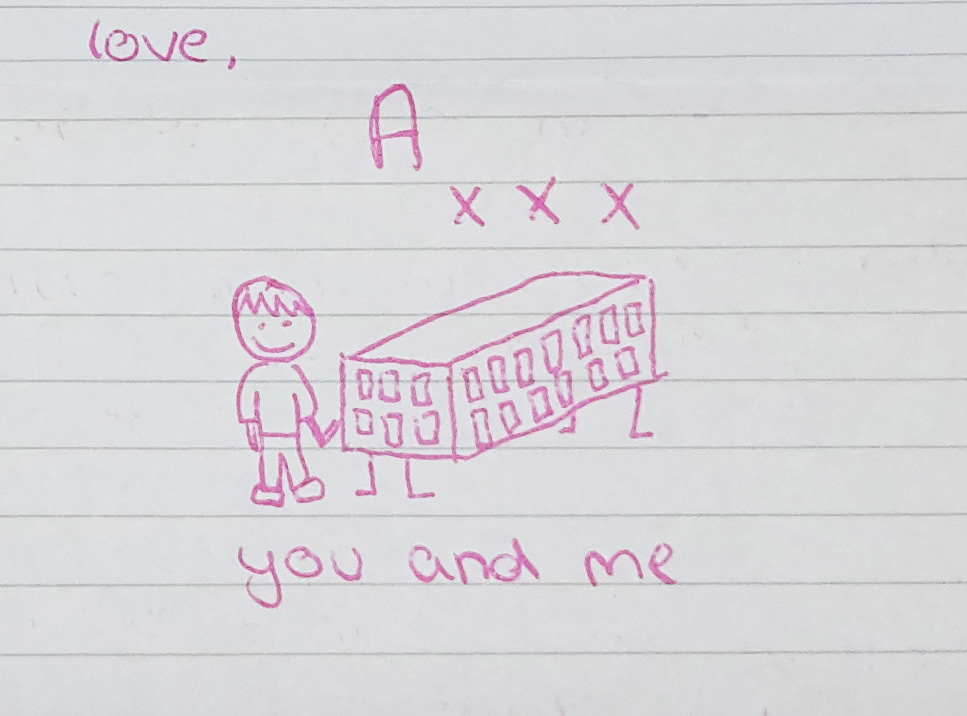 love,
A
x x x
you and me